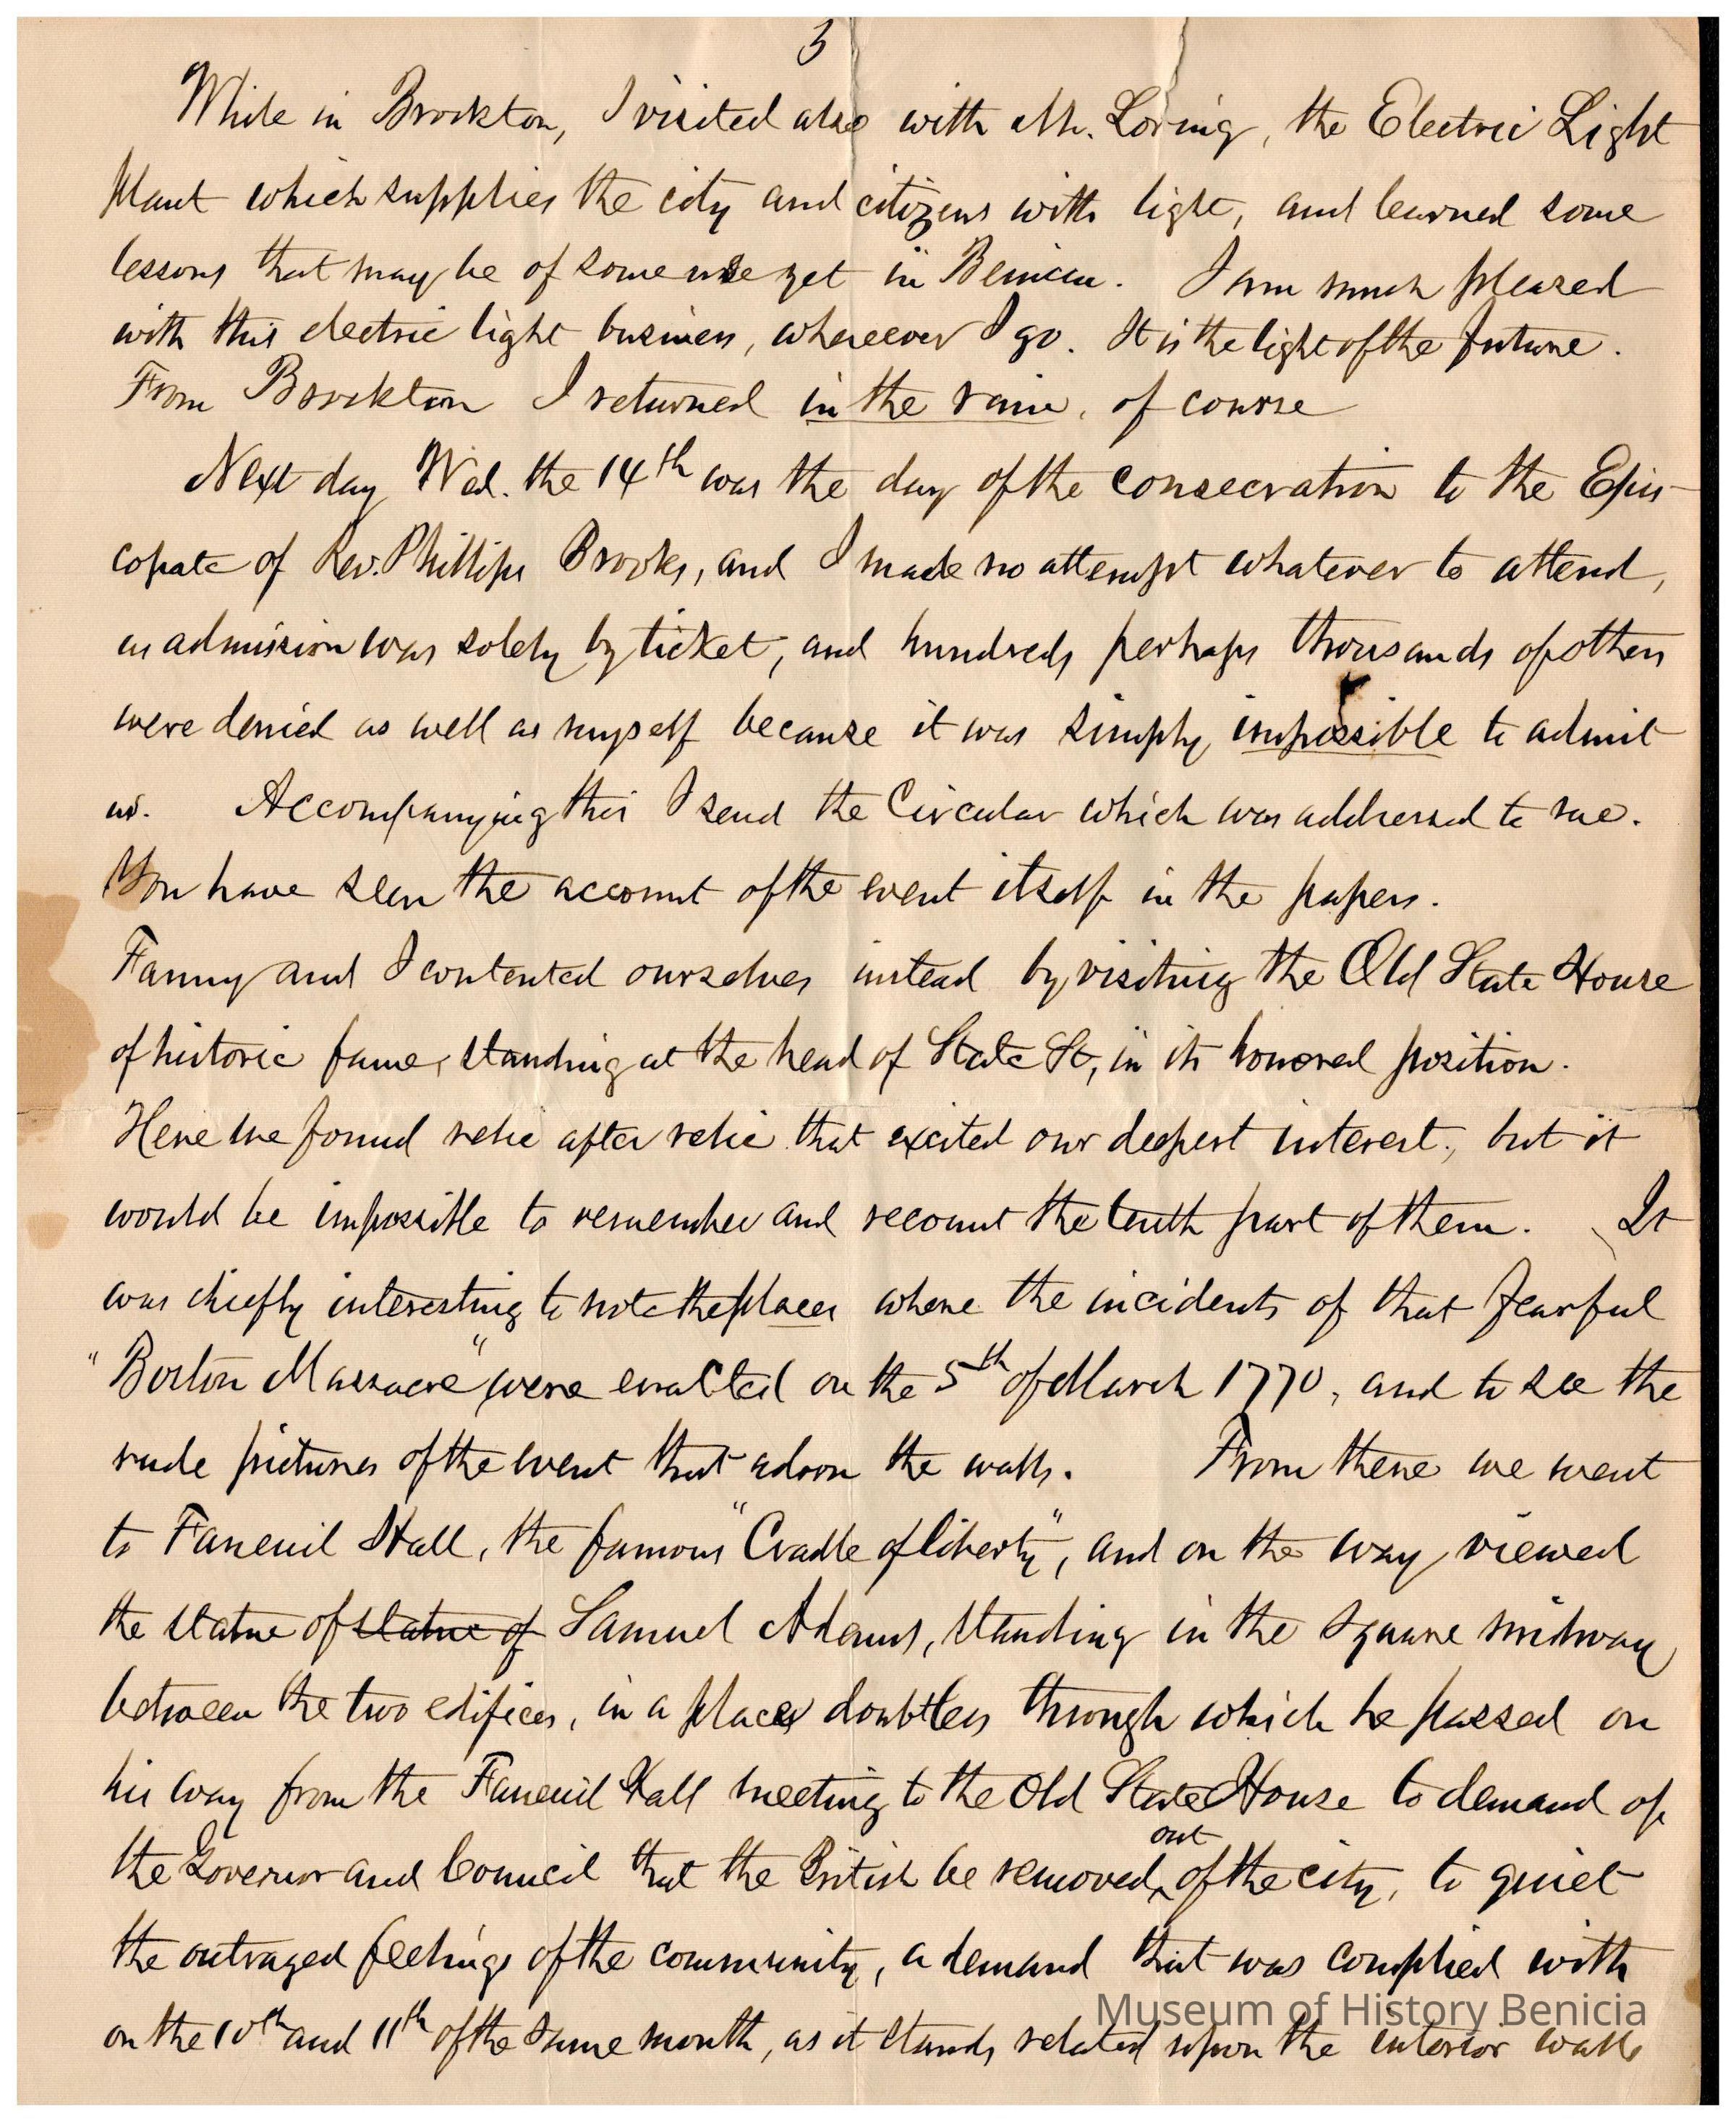 3
While in Brockton, I visited also with Mr. Loring, the Electric Light
Plant which supplies the city and citizens with light, and learned some
lessons that may be of some use yet in Benicia. I am much pleased
with this electric light business, wherever I go. It is the light of the future.
From Brockton I returned in the rain, of course
Next day Wed. the 14th was the day of the consecration to the Epis-
copate of Rev. Phillips Brooks, and I made no attempt whatever to attend,
as admission was solely by ticket, and hundreds perhaps thousands of others
were denied as well as myself because it was simply impossible to admit
us. Accompanying this I send the Circular which was addressed to me.
You have seen the account of the event itself in the papers.
Fanny and I contented ourselves instead by visiting the Old State House
of historic fame, standing at the head of State St, in its honored position.
Here we found relic after relic that excited our deepest interest, but it
would be impossible to remember and recount the tenth part of them. It
was chiefly interesting to note the places where the incidents of that fearful
"Boston Massacre" were enacted on the 5th of March 1770, and to see the
rude pictures of the event that adorn the walls. From there we went
to Faneuil Hall, the famous "Cradle of liberty", and on the way viewed
the statue of statue of Samuel Adams, standing in the square midway
between the two edifices, in a place doubtless through which he passed on
his way from the Faneuil Hall meeting to the Old State House to demand of
the Governor and Council that the British be removed out of the city, to quiet
the outraged feelings of the community, a demand that was complied with
on the 10th and 11th of the same month, as it stands related upon the interior walls
Museum of History Benicia